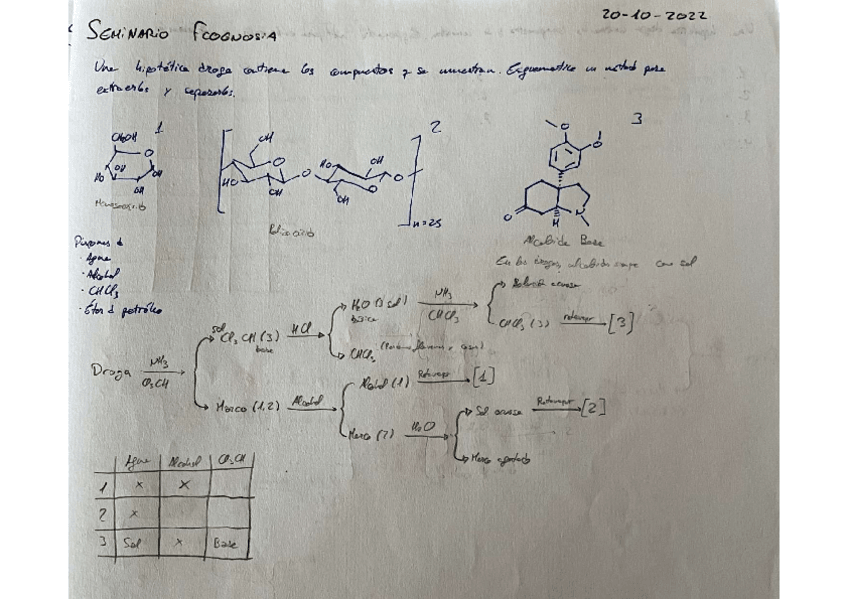 20-10-2022
SEMINARIO FCOGNOSIA
Una hipotética droga contiene los compuestos q se muestran. Esquematice un método para
extraerlos y separarlos.
1
CH₂OH
O
OH
HO
OH
OH
Monosacárido
2
OH
O
HO
OH
O
HO
OH
OH
O
O
n=25
Polisacárido
3
O
O
O
H
N
Alcaloide Base
En las drogas, alcaloides como sal
Disponemos d
· Agua
· Alcohol
· CHCl₃
· Éter d petróleo
Droga NH₃ Cl₃CH
sol Cl₃CH (3) base HCl
H₂O (3 sal) NH₃ CHCl₃
Solución acuosa
CHCl₃ (3) rotavapor [3]
CHCl₃
Marco (1,2) Alcohol
Alcohol (1) Rotavapor [1]
Marco (2) H₂O
Sol acuosa Rotavapor [2]
Marco agotado
Agua Alcohol Cl₃CH
1 x x
2 x
3 Sal x Base